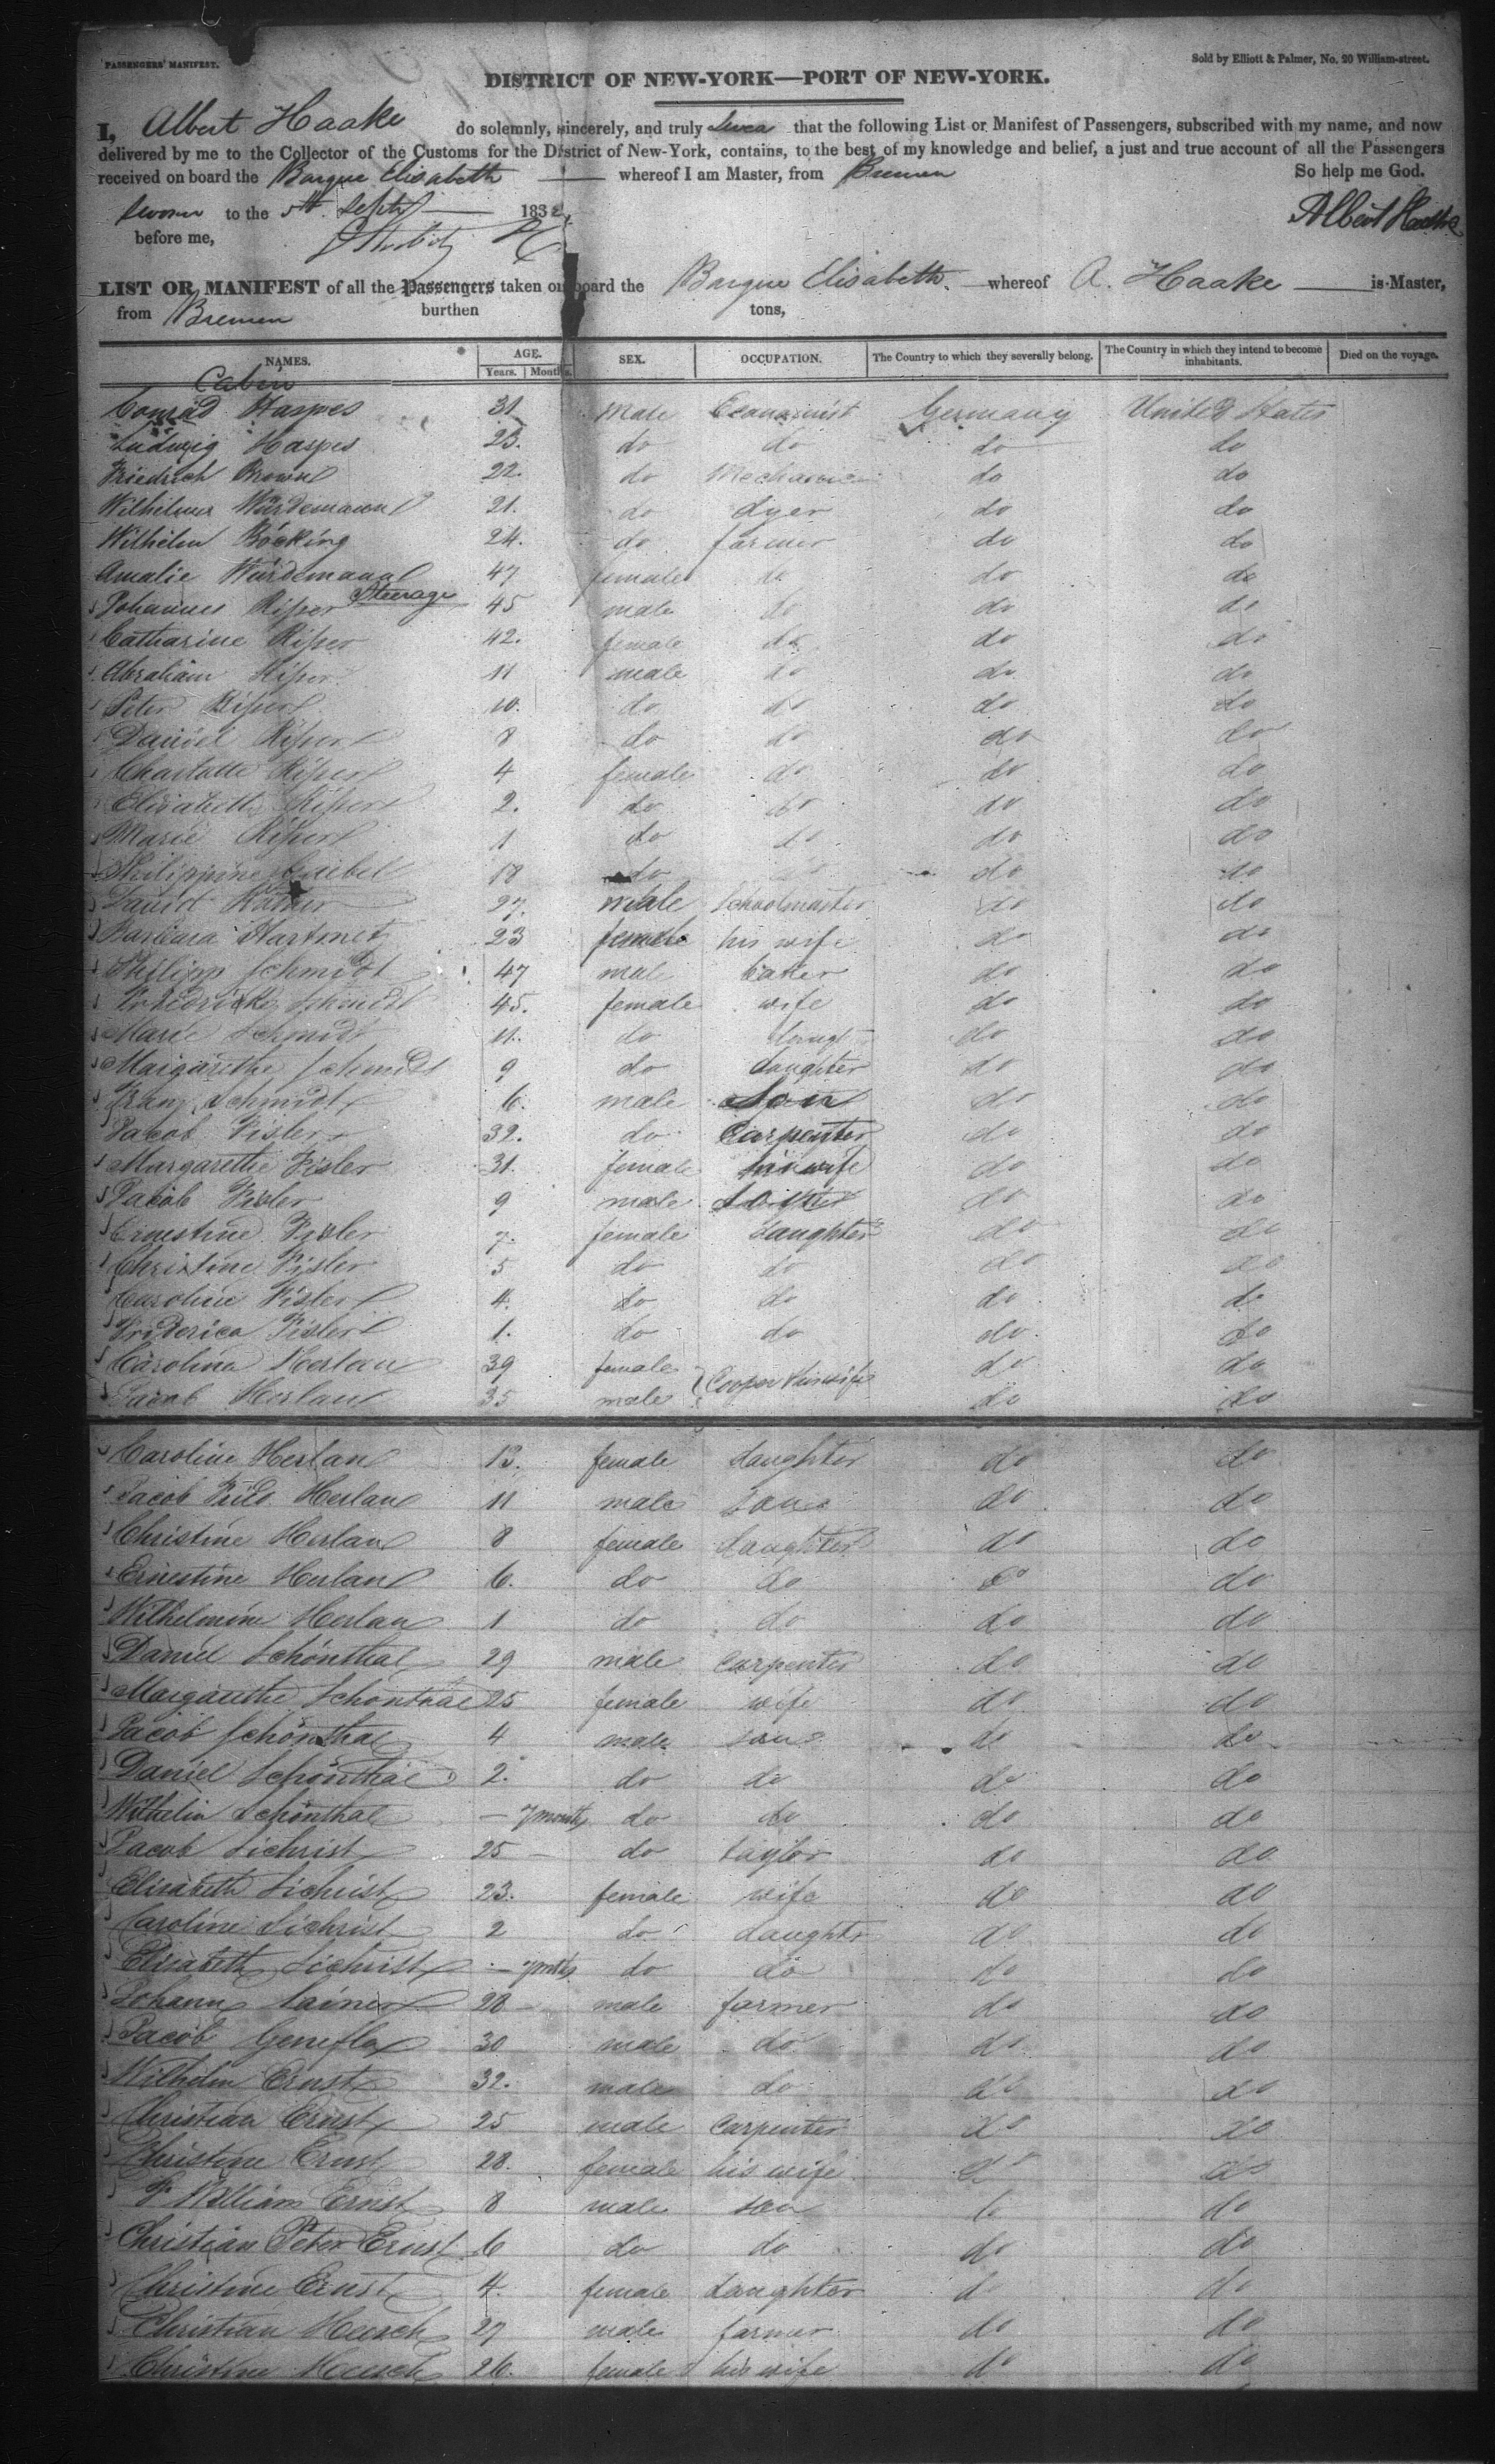 PASSENGERS' MANIFEST.
Sold by Elliott & Palmer, No. 20 William-street.
DISTRICT OF NEW-YORK—PORT OF NEW-YORK.
I, Albert Haake do solemnly, sincerely, and truly swear that the following List or Manifest of Passengers, subscribed with my name, and now
delivered by me to the Collector of the Customs for the District of New-York, contains, to the best of my knowledge and belief, a just and true account of all the Passengers
received on board the Barque Elisabeth whereof I am Master, from Bremen So help me God.
Sworn to the 5th Sept 183
Albert Haake
before me,
LIST OR MANIFEST of all the Passengers taken on board the Barque Elisabeth whereof A. Haake is Master,
from Bremen burthen tons,
NAMES. AGE. SEX. OCCUPATION. The Country to which they severally belong. The Country in which they intend to become inhabitants. Died on the voyage.
Years. Months.
Cabin
Conrad Haspes 31 Male Germany United States
Ludwig Haspes 23. do do do do
Friedrich 22. do Mechanic do do
Würdemann 21. do dyer do do
Wilhelm Böcking 24. do farmer do do
Amalie Würdemann 47 female do do do
Steerage
Johannes Riper 45 male do do do
Catharine Riper 42. female do do do
Abraham Riper 11 male do do do
Peter Riper 10. do do do do
Daniel Riper 8 do do do do
Charlotte Riper 4 female do do do
Elisabeth Riper 2. do do do do
Marie Riper 1 do do do do
Philippine 18 do do do
David 27. male Schoolmaster do do
Barbara Hartmetz 23 female his wife do do
Philipp Schmidt 47 male baker do do
Schmidt 45. female wife do do
Marie Schmidt 11. do do do
Margarethe Schmidt 9 do daughter do do
Franz Schmidt 6. male Son do do
Jacob Fisler 32. do Carpenter do do
Margarethe Fisler 31. female his wife do do
Jacob Fisler 9 male do do
Ernestine Fisler 7. female daughter do do
Christine Fisler 5 do do do do
Caroline Fisler 4. do do do do
Friderica Fisler 1. do do do do
Carolina Herlan 39 female Cooper & his wife do do
Jacob Herlan 35 male do do
Caroline Herlan 13. female daughter do do
Jacob Herlan 11 male son do do
Christine Herlan 8 female daughter do do
Ernestine Herlan 6. do do do do
Wilhelmine Herlan 1 do do do do
Daniel Schönthal 29 male carpenter do do
Margarethe Schönthal 25 female wife do do
Jacob Schönthal 4 male son do do
Daniel Schönthal 2. do do do do
Wilhelm Schönthal — 7 months do do do do
Jacob Sichrist 25 — do taylor do do
Elisabeth Sichrist 23. female wife do do
Caroline Sichrist 2 do daughter do do
Elisabeth Sichrist — 7 mths do do do do
Johann 28 — male farmer do do
Jacob 30 male do do do
Wilhelm Ernst 32. male do do do
Christian Ernst 25 male Carpenter do do
Christine Ernst 28. female his wife do do
William Ernst 8 male son do do
Christian Peter Ernst 6 do do do do
Christine Ernst 4. female daughter do do
Christian Heesch 27 male farmer do do
Christine Heesch 26. female his wife do do